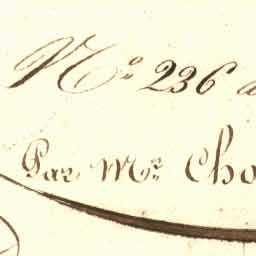 N° 236
Par Mr. Cho